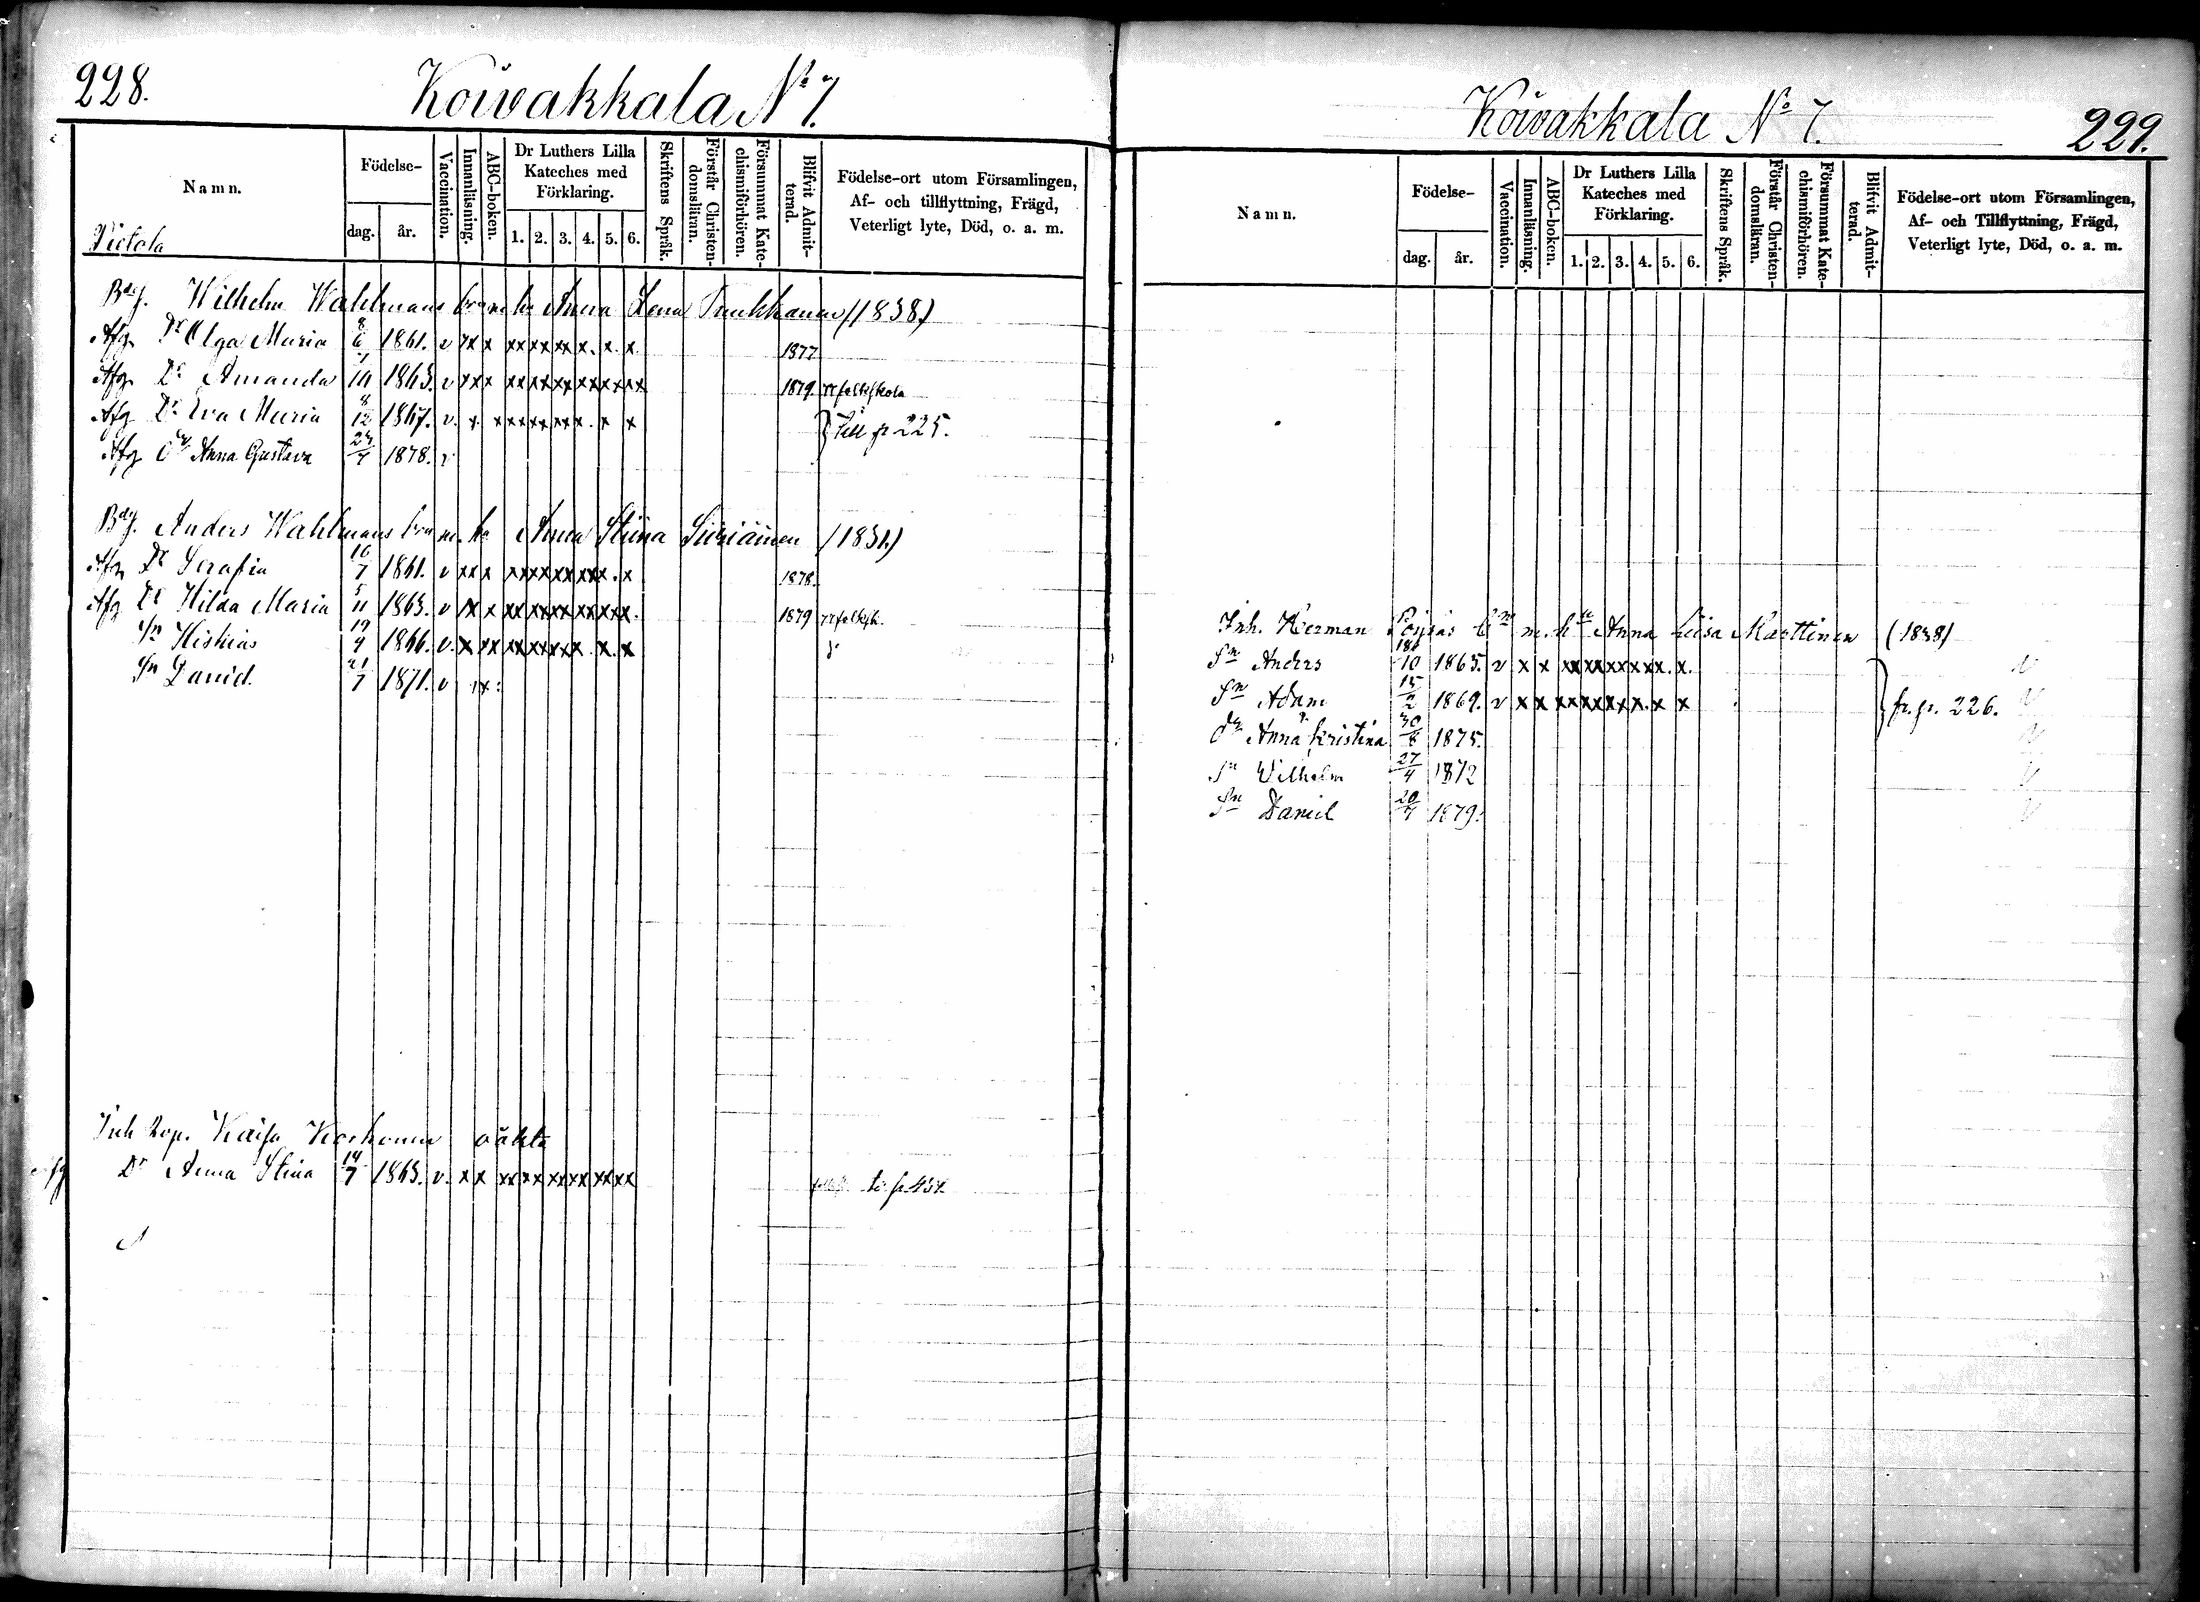 228.
Koivakkala No 7.
Namn.
Födelse-
dag.
år.
Vaccination.
Innanläsning.
ABC-boken.
Dr Luthers Lilla
Kateches med
Förklaring.
1. 2. 3. 4. 5. 6.
Skriftens Språk.
Förstår Christen-
domsläran.
Försummat Kate-
chismiförhören.
Blifvit Admit-
terad.
Födelse-ort utom Församlingen,
Af- och tillflyttning, Frägd,
Veterligt lyte, Död, o. a. m.
Wilhelm Wahlmans barn m. h. Anna Lena (1838)
Afg. Dr Olga Maria 8/6 1861. v xx x xx xx xx x. x. x. 1877
Afg. Dr Amanda 1863. v xx x xx xx xx xx xx xx 1879. folkskola
Afg Dr Eva Maria 8/12 1867. v. x. x xx xx xx x. x x
} Till p 225.
Afg Dr Anna Gustava 1878. v
Anders Wahlmans barn m. h. Anna Stina (1831)
Afg Dr Serafia 10/7 1861. v xx x xx xx xx xx x. x 1878.
Afg Dr Hilda Maria 5/11 1863. v xx x xx xx xx xx xx x. 1879 folksk.
Sn Hiskias 19/4 1866. v. x xx xx xx xx x x. x
Sn David. 21/7 1871. v xx
Inh Kaisa Korhonen oäkta
Afg Dr Anna Stina 14/7 1863. v. x x xx xx xx xx xx xx
Koivakkala No 7.
229.
Namn.
Födelse-
dag.
år.
Vaccination.
Innanläsning.
ABC-boken.
Dr Luthers Lilla
Kateches med
Förklaring.
1. 2. 3. 4. 5. 6.
Skriftens Språk.
Förstår Christen-
domsläran.
Försummat Kate-
chismiförhören.
Blifvit Admit-
terad.
Födelse-ort utom Församlingen,
Af- och Tillflyttning, Frägd,
Veterligt lyte, Död, o. a. m.
Inh. Herman m. h. Anna Liisa Marttinen (1838)
Sn Anders 1865. v x x xx xx xx xx x. x.
Sn Adam 15/2 1869. v x x xx xx xx x. x x
} fr. p. 226.
Dr Anna Kristina 30/8 1875.
Sn Wilhelm 27/4 1872
Sn Daniel 20/7 1879.